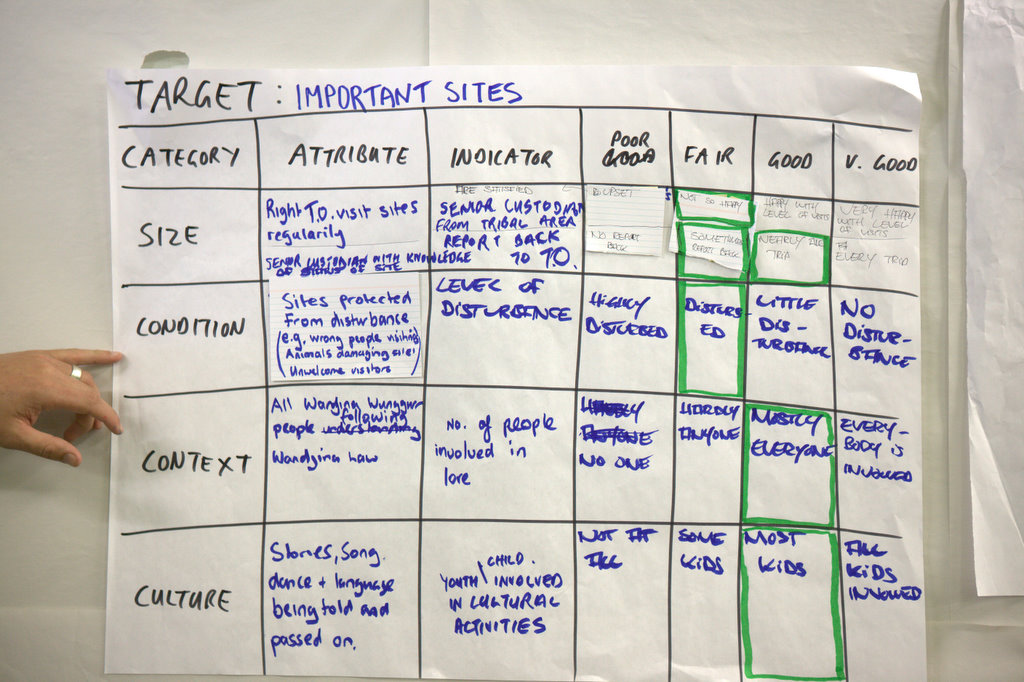 TARGET: IMPORTANT SITES
CATEGORY
ATTRIBUTE
INDICATOR
POOR
FAIR
GOOD
V. GOOD
SIZE
Right T.O. visit sites
regularily
SENIOR CUSTODIAN WITH KNOWLEDGE
OF STATUS OF SITE
ARE SATISFIED
SENIOR CUSTODIAN
FROM TRIBAL AREA
REPORT BACK
TO T.O.
UPSET
NO REPORT
BACK
NOT SO HAPPY
SOMETIMES
REPORT BACK
HAPPY WITH
LEVEL OF VISITS
NEARLY ALL
TRIP
VERY HAPPY
WITH LEVEL
OF VISITS
EVERY TRIP
CONDITION
Sites protected
from disturbance
(e.g. wrong people visiting
Animals damaging sites
Unwelcome visitors)
LEVEL OF
DISTURBANCE
HIGHLY
DISTURBED
DISTURB-
ED
LITTLE
DIS-
TURBANCE
NO
DISTUR-
BANCE
CONTEXT
All Wanjina Wunggurr
following
people understanding
Wandjina Law
No. of people
involved in
lore
HARDLY
ANYONE
NO ONE
HARDLY
ANYONE
MOSTLY
EVERYONE
EVERY-
BODY IS
INVOLVED
CULTURE
Stories, Song.
dance + language
being told and
passed on.
CHILD.
YOUTH INVOLVED
IN CULTURAL
ACTIVITIES
NOT AT
ALL
SOME
KIDS
MOST
KIDS
ALL
KIDS
INVOLVED